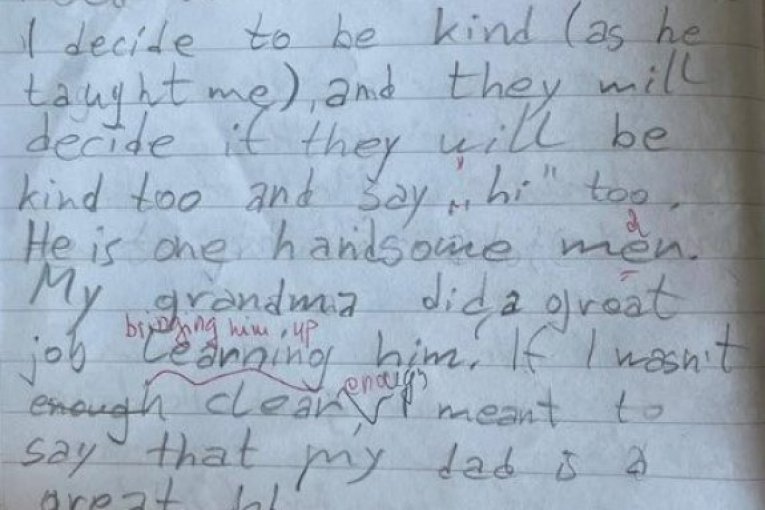 I decide to be kind (as he
taught me), and they will
decide if they will be
kind too and say „hi" too.
a
He is one handsome men.
My grandma did a great
bringing him up
job learning him. If I wasn't
enough
enough clear, I meant to
say that my dad is a
great